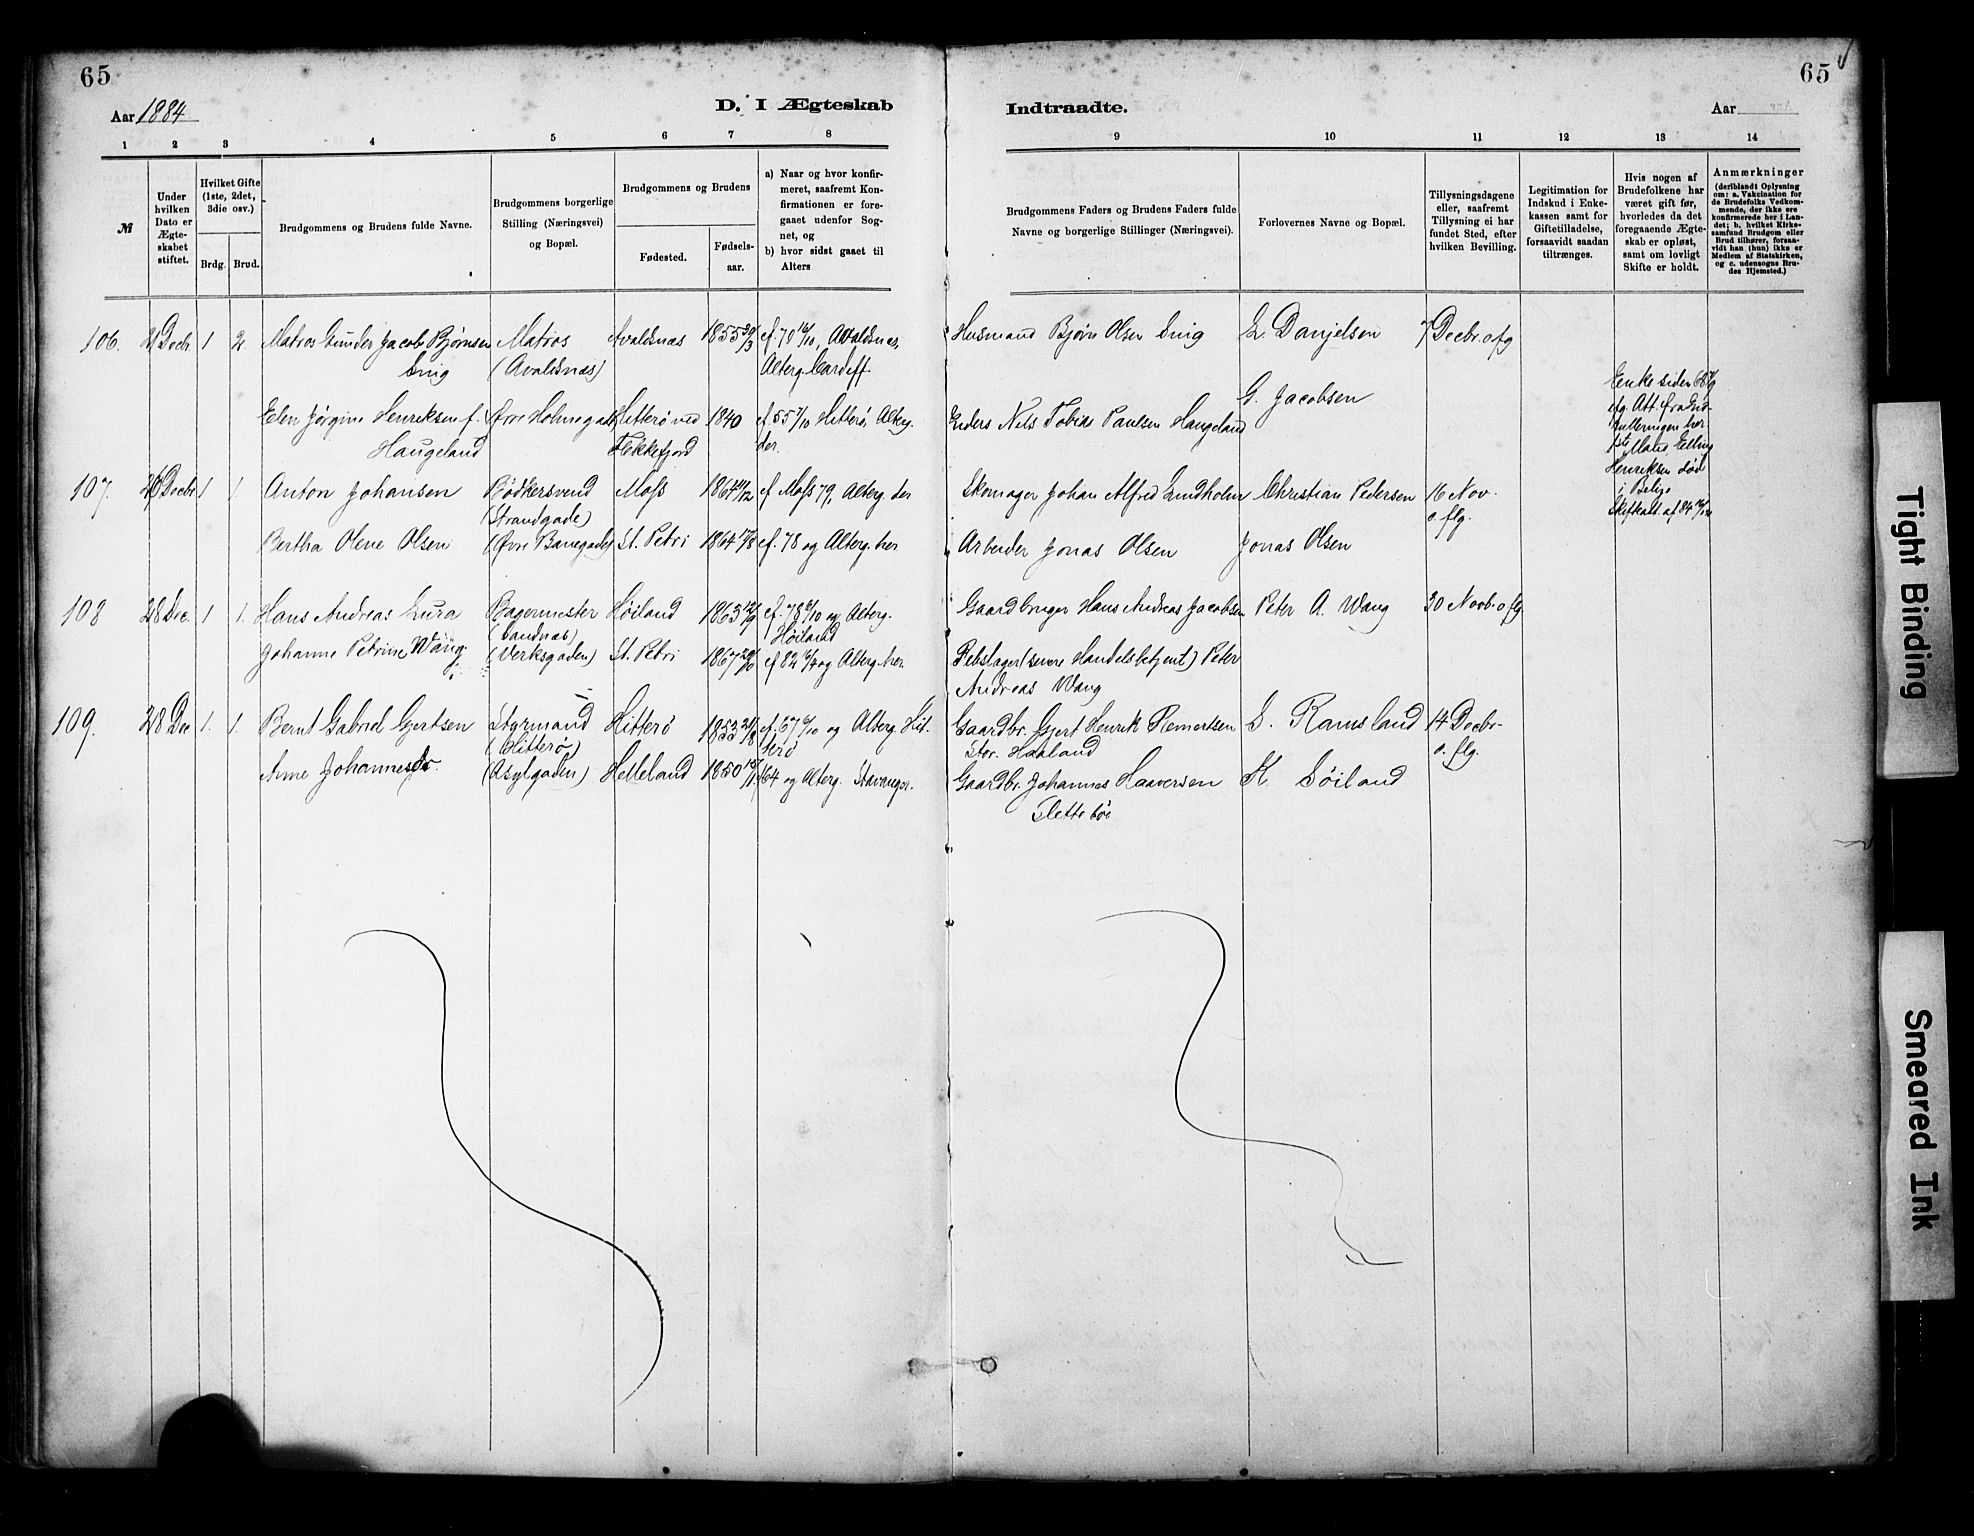 65
Aar 1884
D. I Ægteskab
1 2 3 4 5 6 7 8
№
Under hvilken Dato er Ægteskabet stiftet.
Hvilket Gifte (1ste, 2det, 3die osv.)
Brdg. Brud.
Brudgommens og Brudens fulde Navne.
Brudgommens borgerlige Stilling (Næringsvei) og Bopæl.
Brudgommens og Brudens
Fødested.
Fødselsaar.
a) Naar og hvor konfirmeret, saafremt Konfirmationen er foregaaet udenfor Sognet, og
b) hvor sidst gaaet til Alters
106. 21 Decbr. 1 2. Matros Gunder Jacob Bjørnsen Matros Avaldsnæs 1855 29/3 cf. 70 16/10, Avaldsnæs,
Snig (Avaldsnæs) Alterg. Cardeff.
Elen Jørgine Henriksen f. Øvre Holmegade Hitterø ved 1840 cf 55 7/10 Hitterø, Alterg.
Haugeland Flekkefjord der.
107. 26 Decbr 1 1. Anton Johansen Bødkersvend Moss 1864 11/12 cf Moss 79, Alterg. der
(Strandgade)
Bertha Olene Olsen (Øvre Banegade) St. Petri 1864 17/8 cf. 78 og Alterg. her
108 28 Dec. 1 1. Hans Andreas Lura Bagermester Høiland 1863 12/9 cf. 78 6/10 og Alterg.
(Sandnæs) Høiland
Johanne Petrine Wang. (Verksgaden) St. Petri 1867 29/10 cf 82 og Alterg. her
109. 28 Dec 1. 1. Bernt Gabriel Gjertsen Styrmand Hitterø 1853 21/8 cf. 67 6/10 og Alterg. Hit-
(Hitterø) terø
Anne Johannesdr. (Asylgaden) Helleland 1850 15/11 64 og Alterg. Stavanger.
65
Indtraadte.
Aar
9 10 11 12 13 14
Brudgommens Faders og Brudens Faders fulde Navne og borgerlige Stillinger (Næringsvei).
Forlovernes Navne og Bopæl.
Tillysningsdagene eller, saafremt Tillysning ei har fundet Sted, efter hvilken Bevilling.
Legitimation for Indskud i Enkekassen samt for Giftetilladelse, forsaavidt saadan tiltrænges.
Hvis nogen af Brudefolkene har været gift før, hvorledes da det foregaaende Ægteskab er opløst, samt om lovligt Skifte er holdt.
Anmærkninger
(deriblandt Oplysning om: a. Vakcination for de Brudefolks Vedkommende, der ikke ere konfirmerede her i Landet; b. hvilket Kirkesamfund Brudgom eller Brud tilhører, forsaavidt han (hun) ikke er Medlem af Statskirken, og c. udensogns Brudes Hjemsted.)
Husmand Bjørn Olsen Snig L. Danjelsen 7 Decbr. o fg
G. Jacobsen Enke siden 68
efg. Att. fra Ind-
rulleringen her.
Enders Nils Tobias Paulsen Haugeland 1ste Mand Elling
Henriksen død
Skomager Johan Alfred Lundholm Christian Pedersen 16 Nov. i Belize
o. flg. Skifteatt. af 84
Arbeider Jonas Olsen Jonas Olsen
Gaardbruger Hans Andreas Jacobsen Peter A. Wang 30 Novb. o flg
Rebslager (senere Handelsbetjent) Peter
Andreas Wang
Gaardbr. Gjert Henrik Remertsen S. Ramsland 14 Decbr.
Stor. Haaland o. flg.
Gaardbr. Johannes Haaversen K. Søiland
Slettebøe
Tight Binding
Smeared Ink